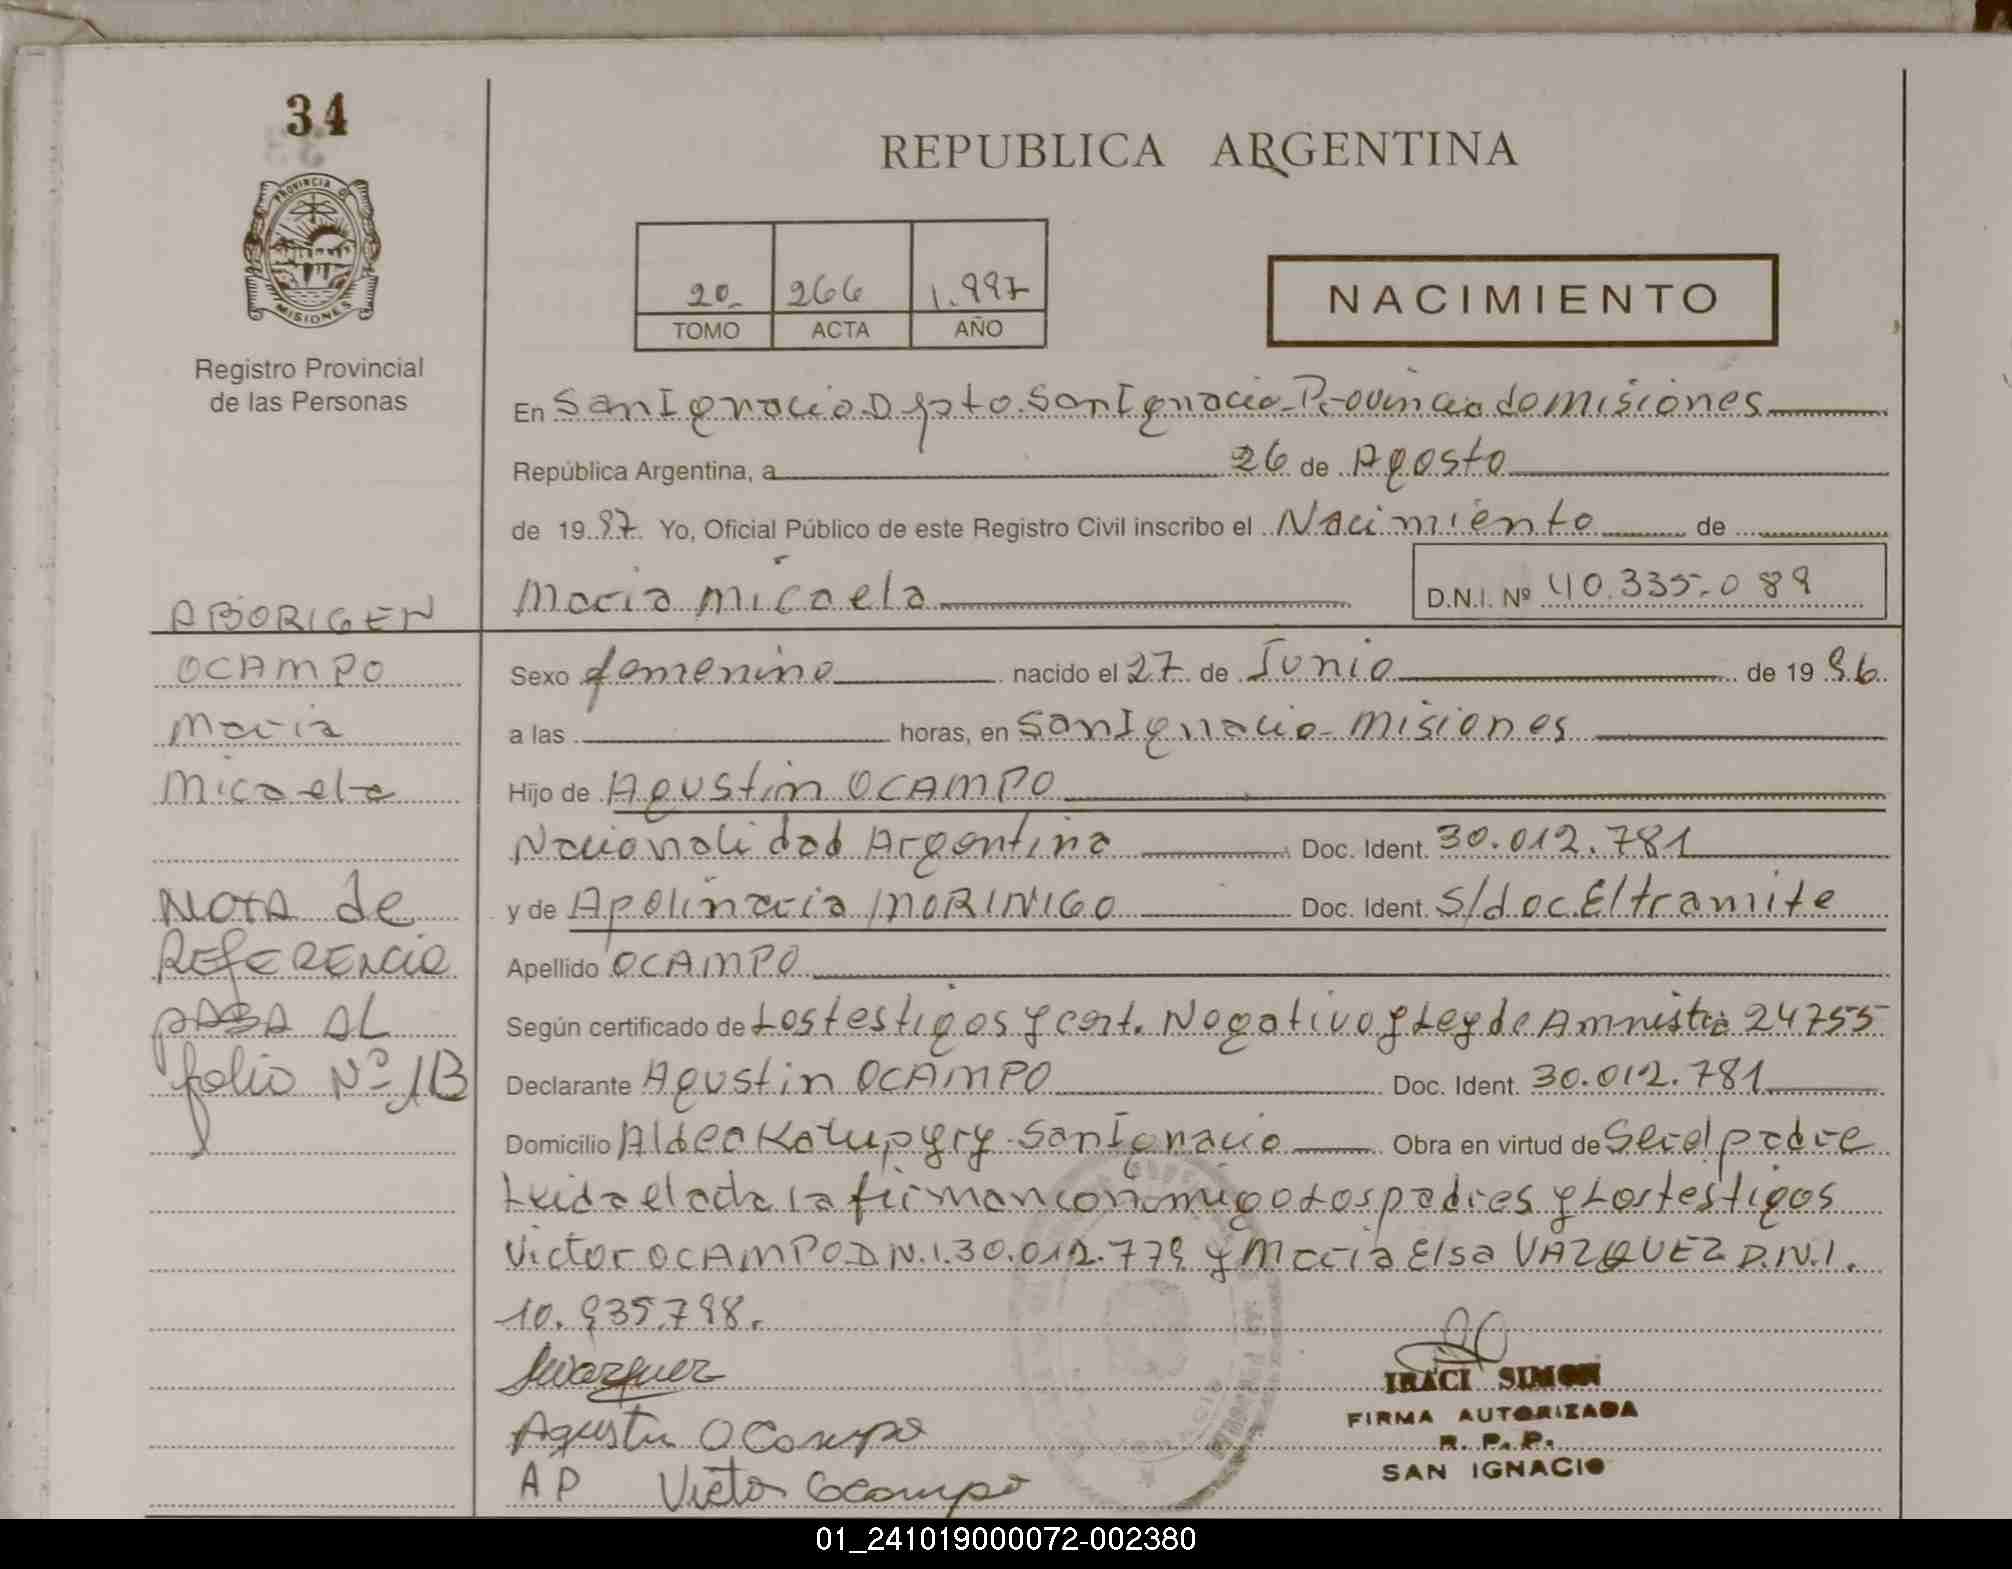 34
PROVINCIA D
MISIONES
Registro Provincial
de las Personas
REPUBLICA ARGENTINA
20 266 1.997
TOMO ACTA AÑO
NACIMIENTO
En San Ignacio Dpto. San Ignacio - Provincia de Misiones
República Argentina, a 26 de Agosto
de 19 97 Yo, Oficial Público de este Registro Civil inscribo el Nacimiento de
Maria Micaela D.N.I. Nº 40.335.089
ABORIGEN
OCAMPO
Maria
Micaela
NOTA de
REFERENCIA
PASA AL
folio Nº 1B
Sexo femenino nacido el 27 de Junio de 19 96
a las horas, en San Ignacio - Misiones
Hijo de Agustin OCAMPO
Nacionalidad Argentina Doc. Ident. 30.012.781
y de Apolinaria MORINIGO Doc. Ident. S/doc.E/tramite
Apellido OCAMPO
Según certificado de Los testigos y cert. Negativo y Ley de Amnistia 24755
Declarante Agustin OCAMPO Doc. Ident. 30.012.781
Domicilio Aldea Katupyry - San Ignacio Obra en virtud de Ser el padre
Leida el acta la firman con migo Los padres y Los testigos
Victor OCAMPO D.N.I. 30.012.779 y Maria Elsa VAZQUEZ D.N.I.
10.935.798.
Agustin Ocampo
AP Victor Ocampo
IRACI SIMON
FIRMA AUTORIZADA
R. P. P.
SAN IGNACIO
01_241019000072-002380